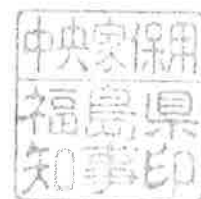 中央家保用
福島県
知事印